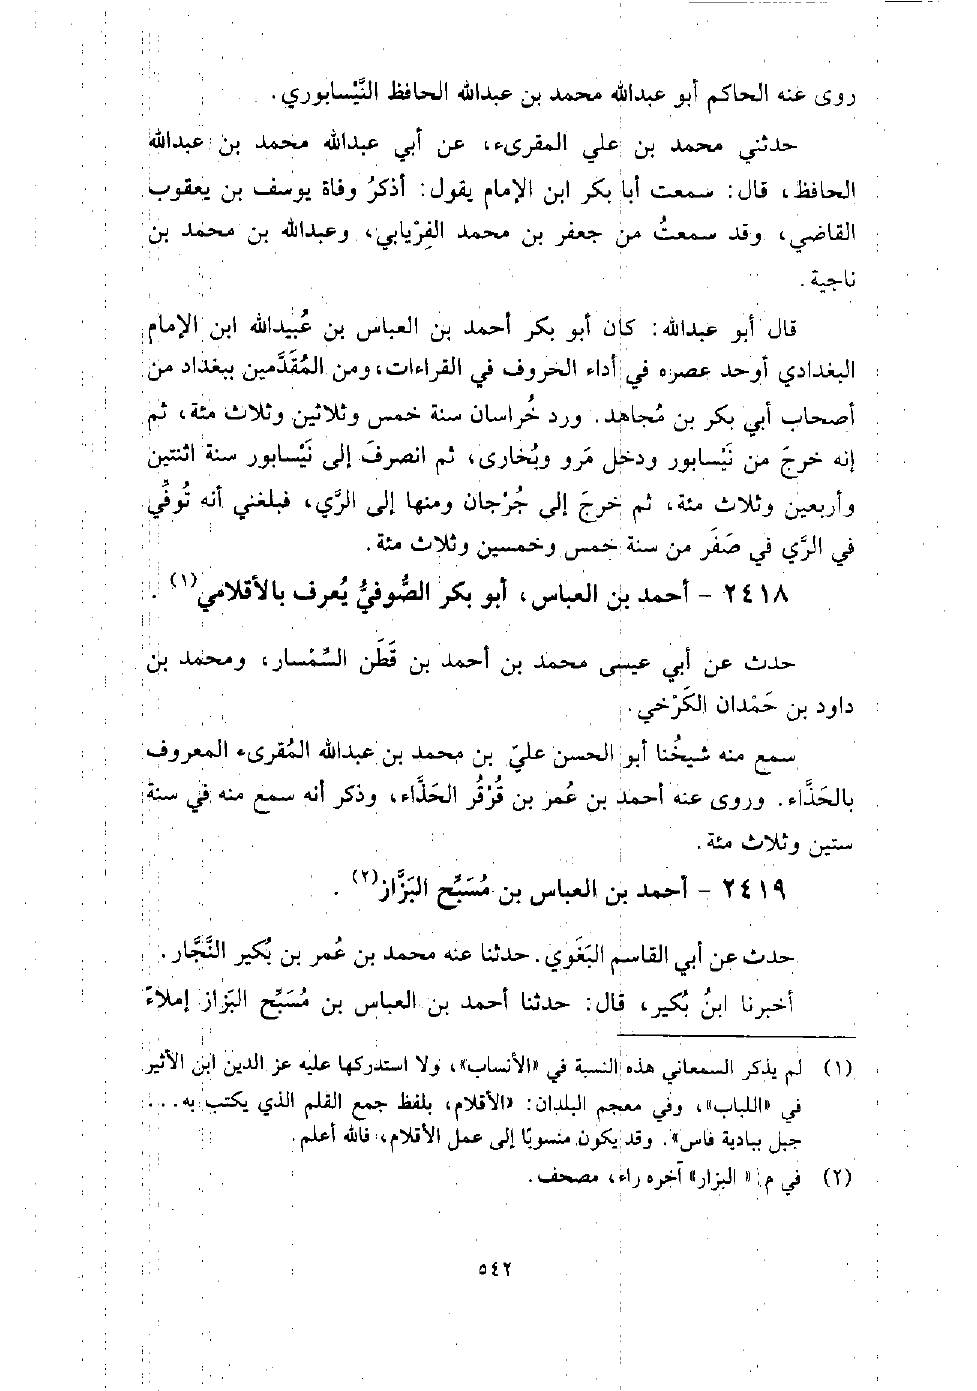 روى عنه الحاكم أبو عبدالله محمد بن عبدالله الحافظ النَّيْسابوري.
حدثني محمد بن علي المقرىء، عن أبي عبدالله محمد بن عبدالله
الحافظ، قال: سمعت أبا بكر ابن الإمام يقول: أذكرُ وفاة يوسف بن يعقوب
القاضي، وقد سمعتُ من جعفر بن محمد الفِرْيابي، وعبدالله بن محمد بن
ناجية.
قال أبو عبدالله: كان أبو بكر أحمد بن العباس بن عُبيدالله ابن الإمام
البغدادي أوحد عصره في أداء الحروف في القراءات، ومن المُقَدَّمين ببغداد من
أصحاب أبي بكر بن مُجاهد. ورد خُراسان سنة خمس وثلاثين وثلاث مئة، ثم
إنه خرجَ من نَيْسابور ودخل مَرو وبُخارى، ثم انصرفَ إلى نَيْسابور سنة اثنتين
وأربعين وثلاث مئة، ثم خرجَ إلى جُرْجان ومنها إلى الرَّي، فبلغني أنه تُوفِّي
في الرَّي في صَفَر من سنة خمس وخمسين وثلاث مئة.
٢٤١٨ - أحمد بن العباس، أبو بكر الصُّوفيُّ يُعرف بالأقلامي(١).
حدث عن أبي عيسى محمد بن أحمد بن قَطَن السِّمْسار، ومحمد بن
داود بن حَمْدان الكَرْخي.
سمع منه شيخُنا أبو الحسن عليّ بن محمد بن عبدالله المُقرىء المعروف
بالحَذَّاء. وروى عنه أحمد بن عُمر بن قُرْقُر الحَذَّاء، وذكر أنه سمع منه في سنة
ستين وثلاث مئة.
٢٤١٩ - أحمد بن العباس بن مُسَبِّح البَزَّاز(٢).
حدث عن أبي القاسم البَغَوي. حدثنا عنه محمد بن عُمر بن بُكير النَّجَّار.
أخبرنا ابنُ بُكير، قال: حدثنا أحمد بن العباس بن مُسَبِّح البَزاز إملاءً
(١) لم يذكر السمعاني هذه النسبة في «الأنساب»، ولا استدركها عليه عز الدين ابن الأثير
في «اللباب»، وفي معجم البلدان: «الأقلام، بلفظ جمع القلم الذي يكتب به...
جبل ببادية فاس». وقد يكون منسوبًا إلى عمل الأقلام، فالله أعلم.
(٢) في م: «البزار» آخره راء، مصحف.
٥٤٢